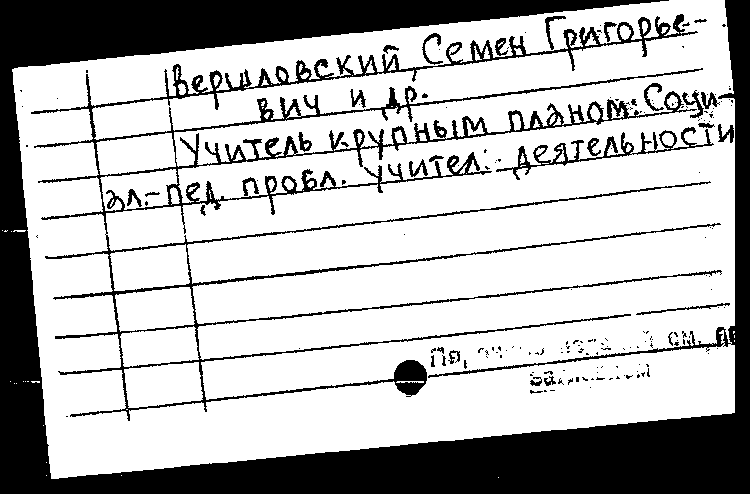 Вершловский, Семен Григорье-
вич и др.
Учитель крупным планом: Соци-
ал.-пед. пробл. учител. деятельности
см. по